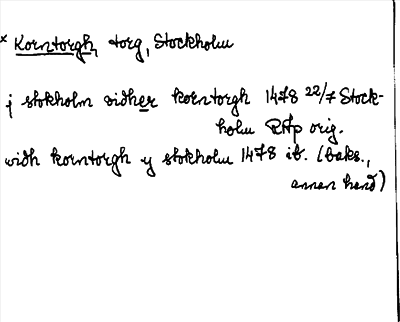 × Korntorgh, torg, Stockholm
j stokholm widher korntorgh 1478 22/7 Stock-
holm RAp orig.
widh korntorgh y stokholm 1478 ib. (baks.,
annan hand)